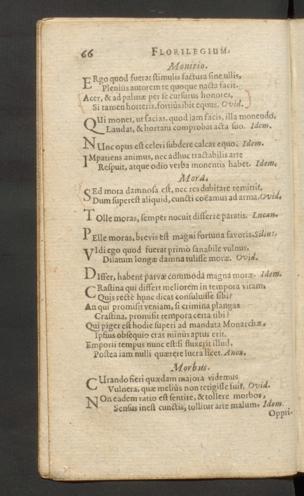 66 FLORILEGIUM.
Monitio.
ERgo quod fuerat stimulis factura sine ullis,
Plenius autorem te quoque nacta facit.
Acer, & ad palmæ per se cursurus honores,
Si tamen horteris, fortiùs ibit equus. Ovid.
QUi monet, ut facias, quod jam facis, illa monendo,
Laudat, & hortatu comprobat acta suo. Idem.
NUnc opus est celeri subdere calcar equo. Idem.
IMpatiens animus, nec adhuc tractabilis arte
Respuit, atque odio verba monentis habet. Idem.
Mora.
SEd mora damnosa est, nec res dubitare remittit,
Dum superest aliquid, cuncti coëamus ad arma. Ovid.
TOlle moras, semper nocuit differre paratis. Lucan.
PElle moras, brevis est magni fortuna favoris. Silius.
VIdi ego quod fuerat primo sanabile vulnus,
Dilatum longæ damna tulisse moræ. Ovid.
DIffer, habent parvæ commoda magna moræ. Idem.
CRastina qui differt meliorem in tempora vitam,
Quis rectè hunc dicat consuluisse sibi?
An qui promisit veniam, si crimina plangas
Crastina, promisit tempora certa tibi?
Qui piger est hodie superi ad mandata Monarchæ,
Ipsius obsequio cras minùs aptus erit.
Emporii tempus nunc est: si fluxerit illud,
Postea jam nulli quærere lucra licet. Anon.
Morbus.
CUrando fieri quædam majora videmus
Vulnera, quæ meliùs non tetigisse fuit. Ovid.
NOn eadem ratio est sentire, & tollere morbos,
Sensus inest cunctis, tollitur arte malum. Idem.
Oppri-